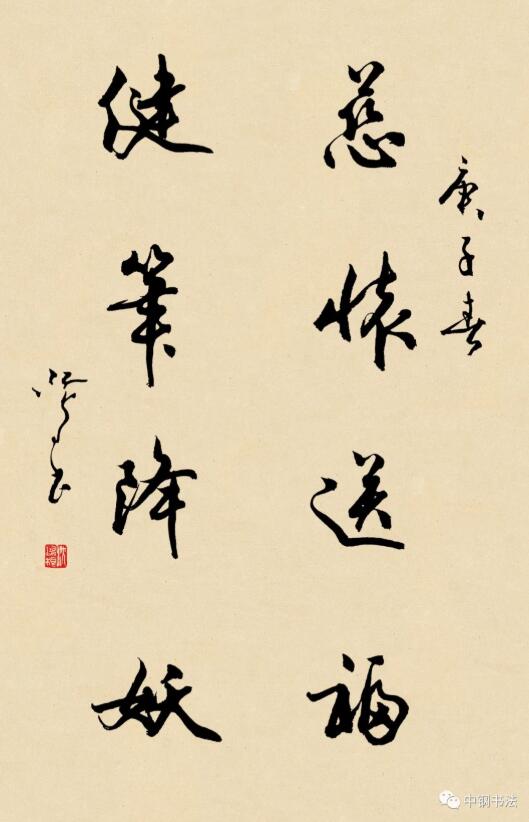 庚子春
慈懷送福
健筆降妖
中钢书法